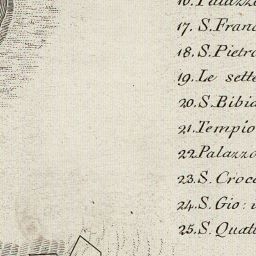 17. S. Franc
18. S. Pietro
19. Le sette
20. S. Bibia
21. Tempio
22. Palazzo
23. S. Croce
24. S. Gio: i
25. S. Quatt